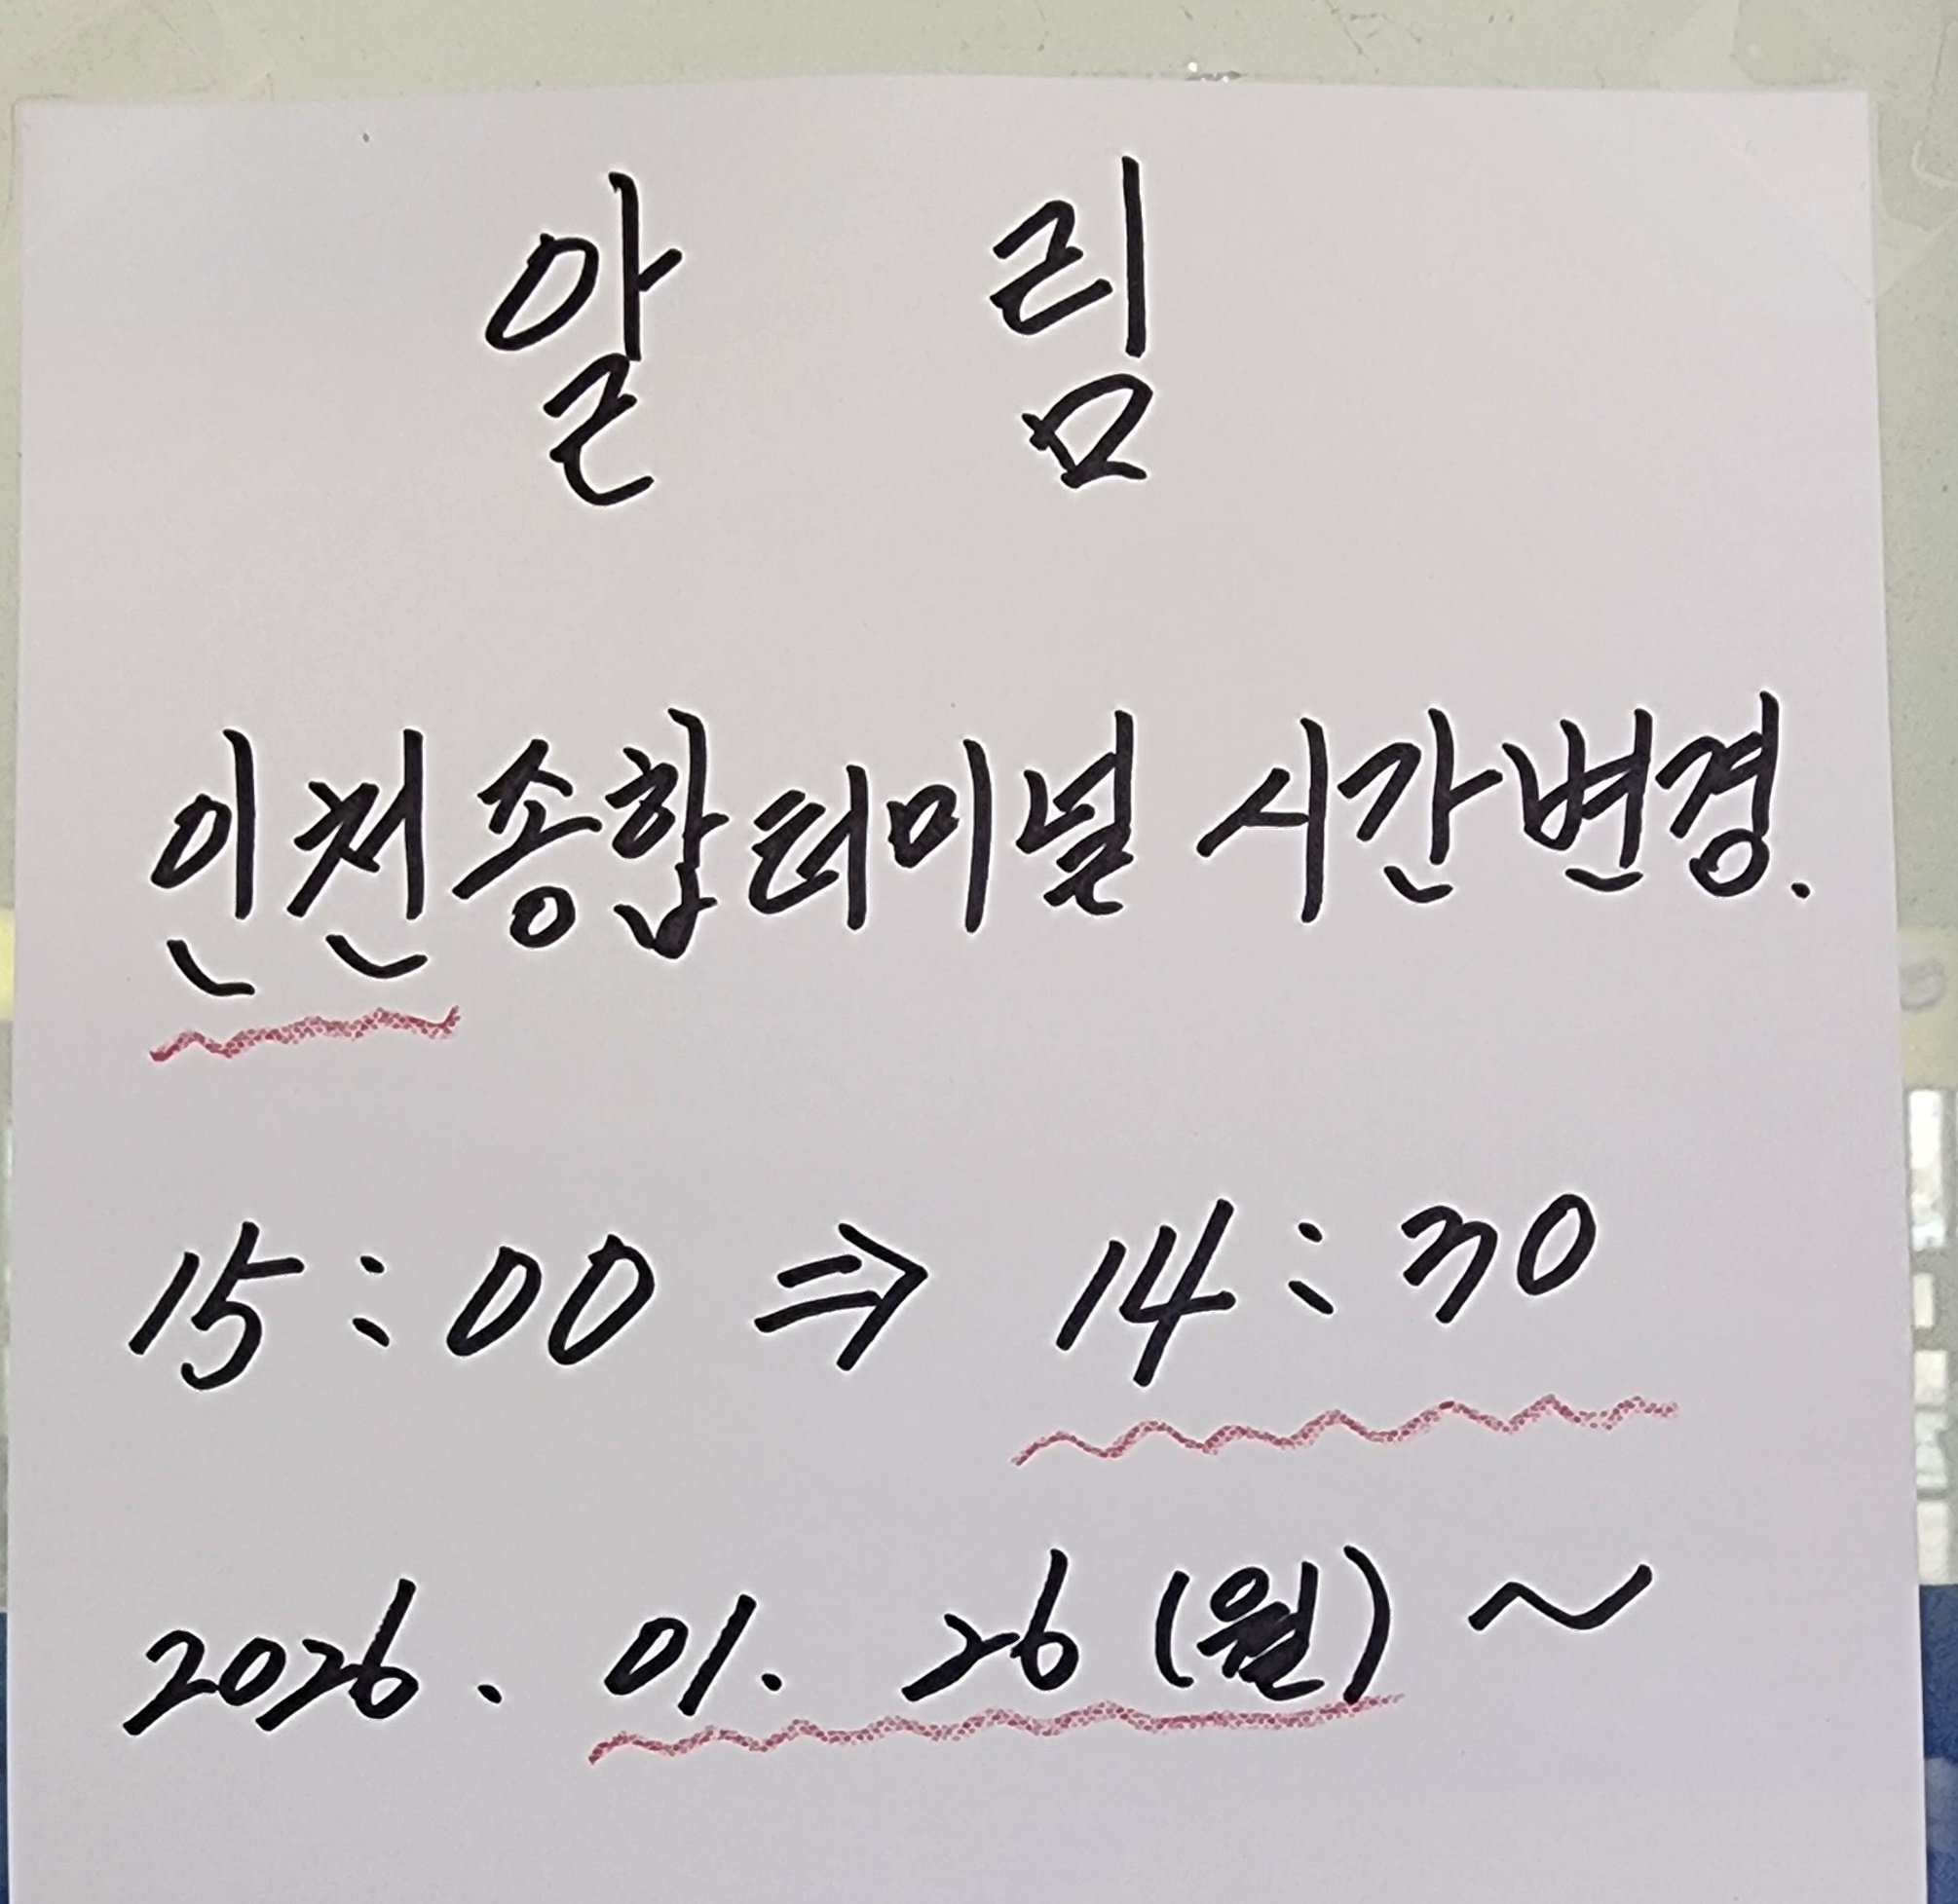 알 림
인천종합터미널 시간변경.
15:00 ⇒ 14:30
2026. 01. 26 (월) ~